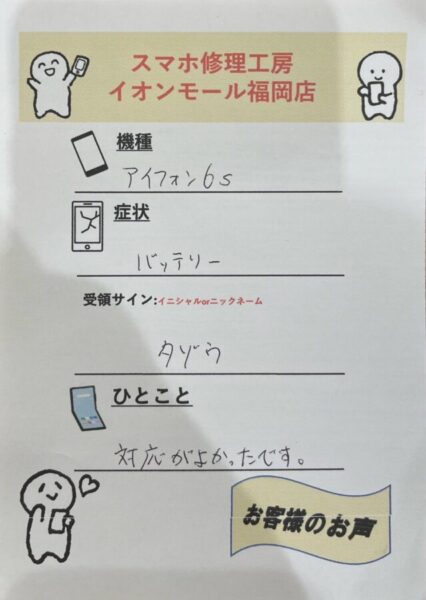 スマホ修理工房
イオンモール福岡店
機種
アイフォン6s
症状
バッテリー
受領サイン:イニシャルorニックネーム
タゾウ
ひとこと
対応がよかったです。
お客様のお声